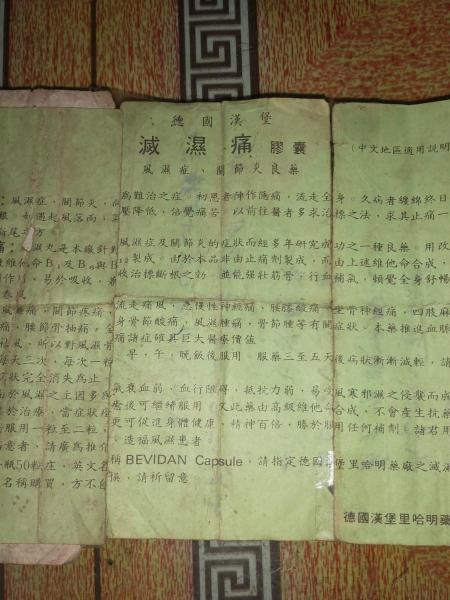 德國漢堡
滅濕痛膠囊
風濕症、關節炎良藥
(中文地區適用說明
：風濕症，關節炎，為難治之症。初患者陣作酸痛，流走全身。久病者纏綿終日
壓降低，倍覺痛苦，以前往醫者多求治標之法，求其止痛一
風濕症及關節炎的症狀而經多年研究成功之一種良藥。用改
維他命B₁及B₁₂製成。由於本品非由止痛劑製成，而由上述維他命合成，
作用，易於吸收，收治標斷根之功，並能強壯筋骨，行血補氣，頓覺全身舒暢
流走痛風，急慢性神經痛，腰膝酸痛，坐骨神經痛，四肢麻
痛，腰節骨抽痛，全身骨節酸痛，風濕腫痛，骨節腫等有關症狀，本藥推進血脈
祛風，所以對風濕骨痛諸症確具巨大醫療價值
每天三次，每次一粒早，午，晚飯後服用，服藥三至五天後病狀漸漸減輕，請
病狀完全消失為止
而於風濕之主因多為氣衰血弱，血行阻碍，抵抗力弱，易受風寒邪濕之侵襲而成
治療，當症狀痊癒後可繼續服用，又此藥由高級維他命合成，不會產生抗藥
服用一粒至二粒，更可促進身體健康，精神百倍，勝於服用任何補劑。諸君用
意者，請廣為推介，造福風濕患者
一瓶50粒庄，英文名稱BEVIDAN Capsule，請指定德國漢堡里哈明藥廠之滅濕
名稱購買，方不致誤，請祈留意
德國漢堡里哈明藥